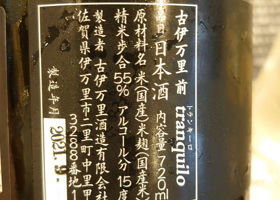 古伊万里 前
トランキーロ
tranquilo
品目 日本酒 内容量 720ml
原材料名 米(国産) 米麹(国産米)
精米歩合 55% アルコール分 15度
製造者 古伊万里酒造有限会社
佐賀県伊万里市二里町中里甲
3288番地1
製造年月
2021.9